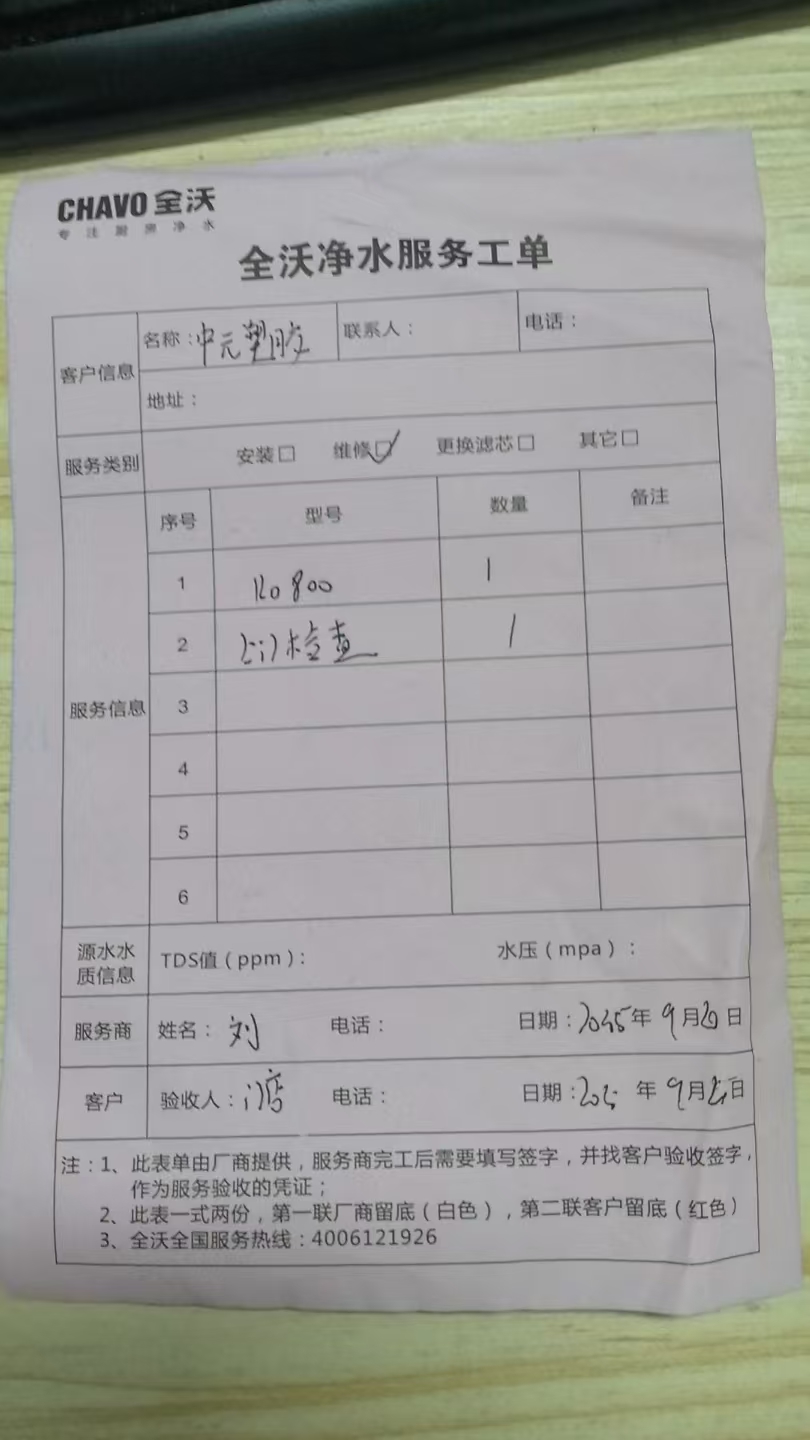 CHAVO 全沃
专注厨房净水
全沃净水服务工单
客户信息
名称：中元塑胶 联系人： 电话：
地址：
服务类别 安装□ 维修☑ 更换滤芯□ 其它□
服务信息
序号 型号 数量 备注
1 Ro 800 1
2 上门检查 1
3
4
5
6
源水水质信息 TDS值（ppm）： 水压（mpa）：
服务商 姓名：刘 电话： 日期：2025年9月20日
客户 验收人：门店 电话： 日期：202 年9月 日
注：1、此表单由厂商提供，服务商完工后需要填写签字，并找客户验收签字，
作为服务验收的凭证；
2、此表一式两份，第一联厂商留底（白色），第二联客户留底（红色）
3、全沃全国服务热线：4006121926